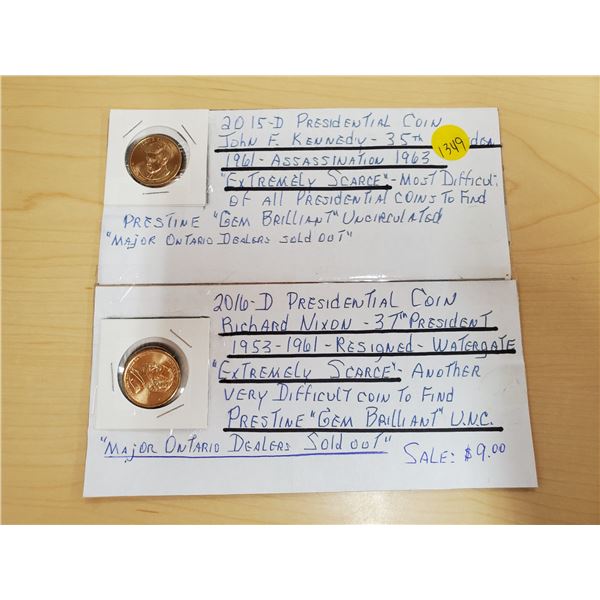 2015-D PRESIDENTIAL COIN
JOHN F. KENNEDY - 35TH
1349
1961 - ASSASSINATION 1963
"EXTREMELY SCARCE" - MOST DIFFICUL
OF ALL PRESIDENTIAL COINS TO FIND
PRESTINE "GEM BRILLIANT" UNCIRCULATED
"MAJOR ONTARIO DEALERS SOLD OUT"
2016-D PRESIDENTIAL COIN
RICHARD NIXON - 37TH PRESIDENT
1953-1961 - RESIGNED - WATERGATE
"EXTREMELY SCARCE" - ANOTHER
VERY DIFFICULT COIN TO FIND
PRESTINE "GEM BRILLIANT" U.N.C.
"MAJOR ONTARIO DEALERS SOLD OUT"
SALE: $9.00